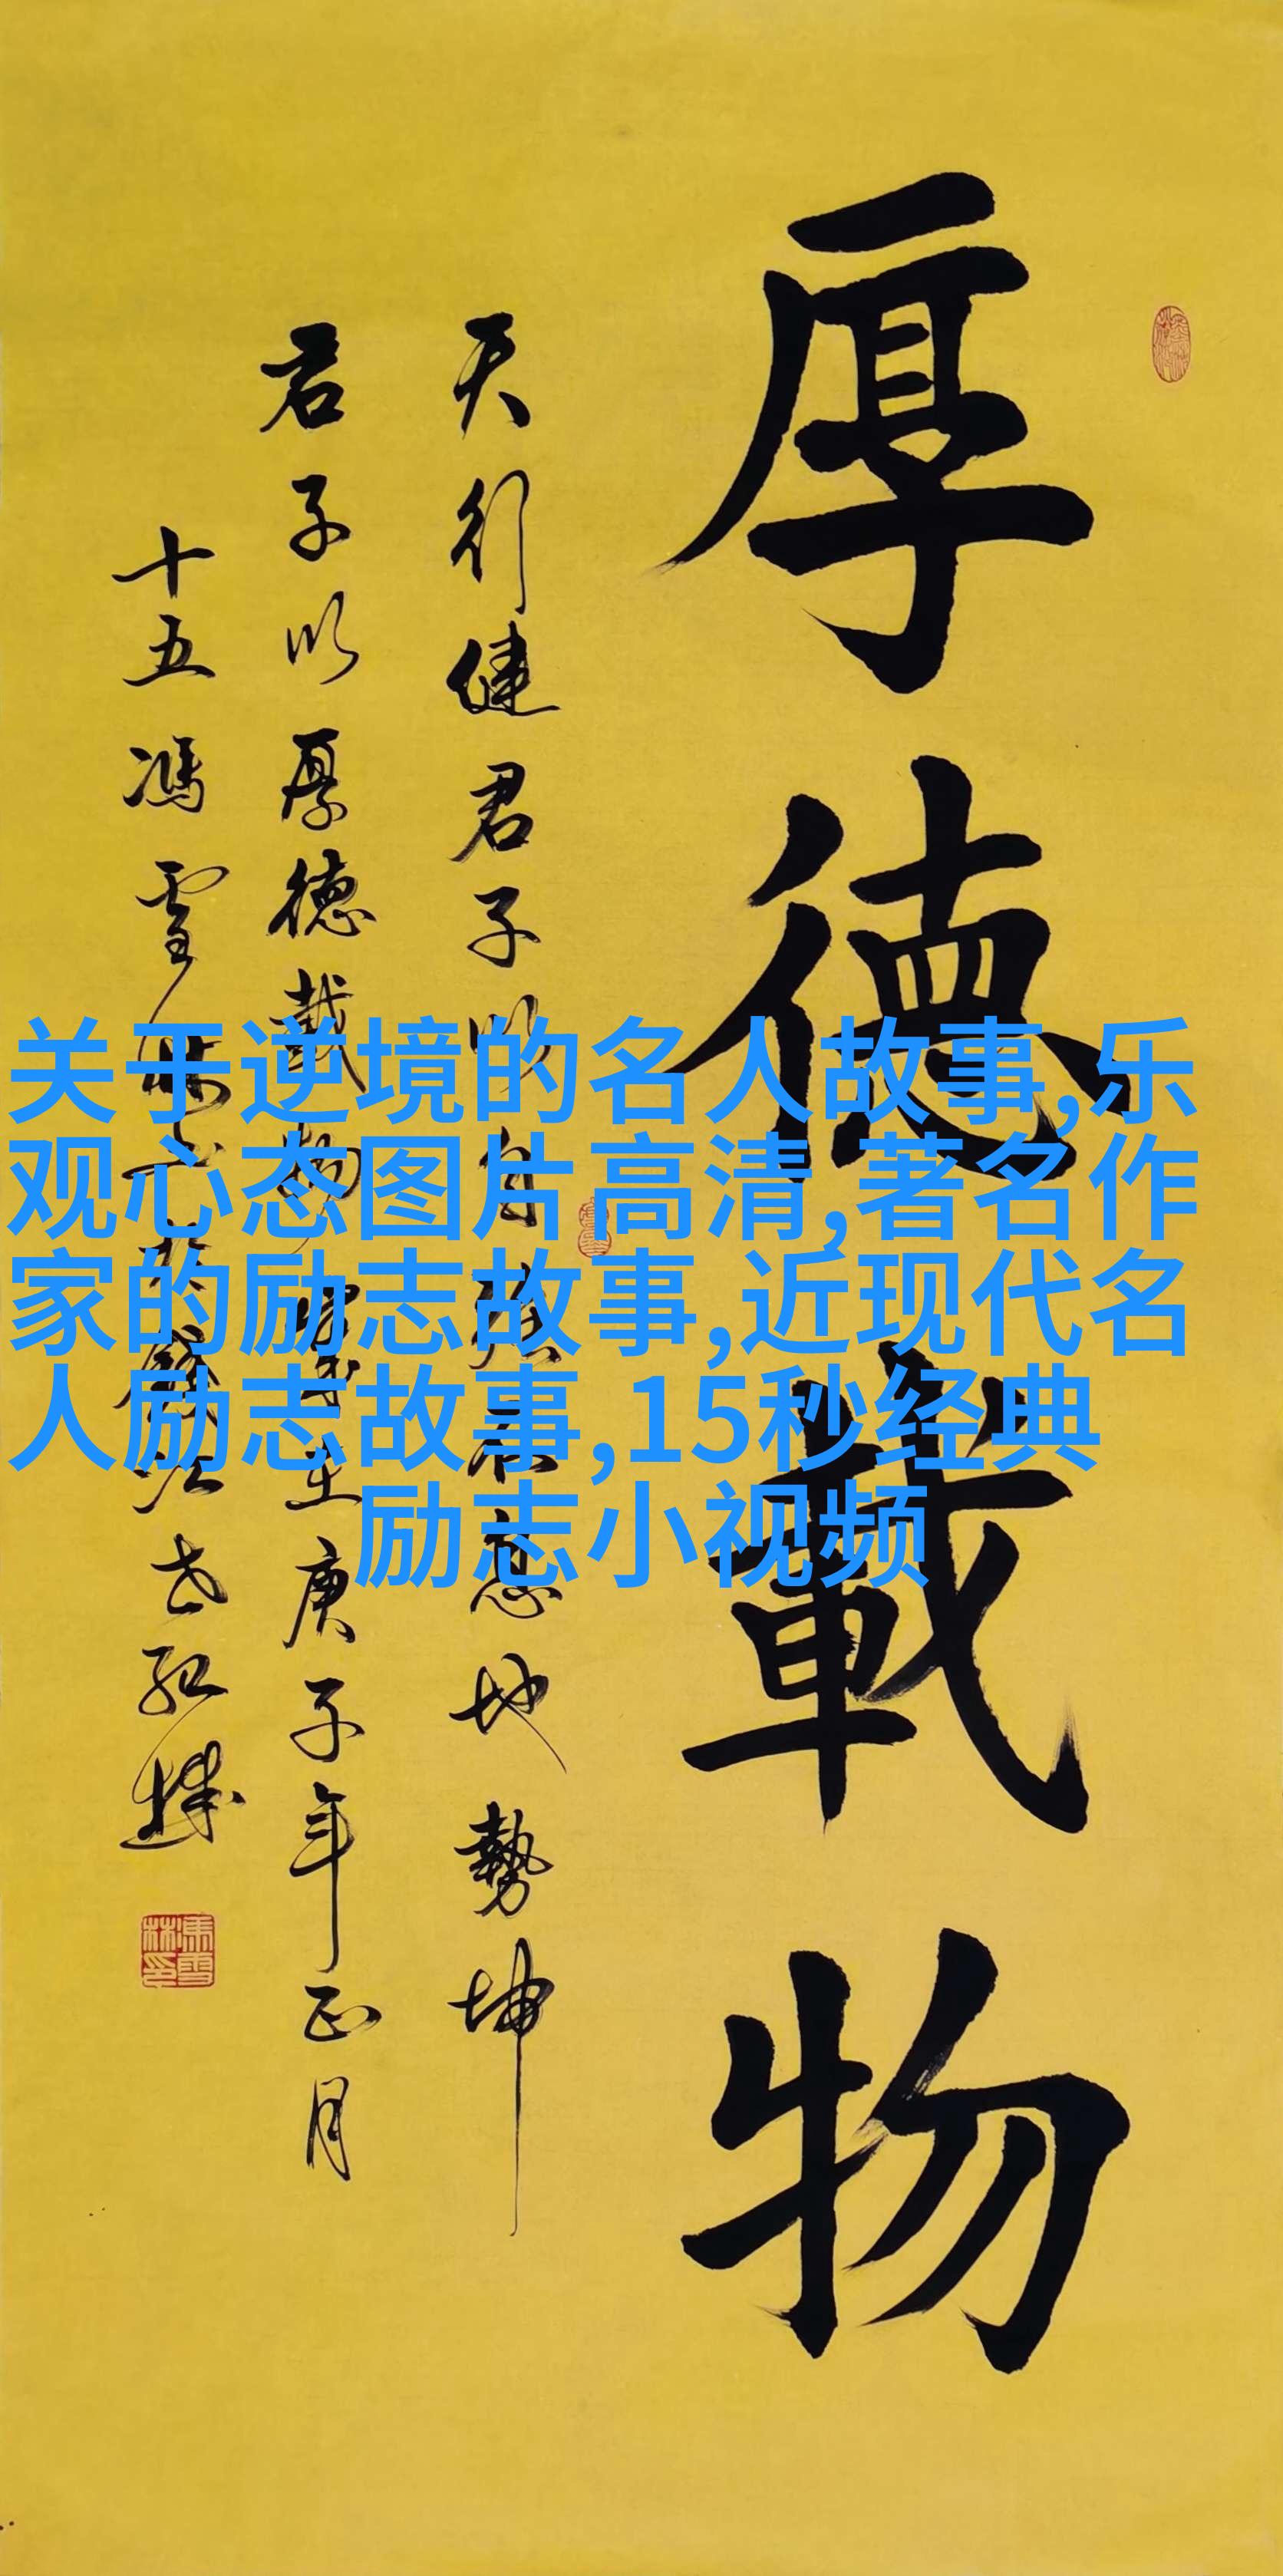 厚德載物
天行健君子以自强不息地勢坤
君子以厚德載物 歲在庚子年正月
十五馮雪林
关于逆境的名人故事,乐
观心态图片高清,著名作
家的励志故事,近现代名
人励志故事,15秒经典
励志小视频
馮雪林印